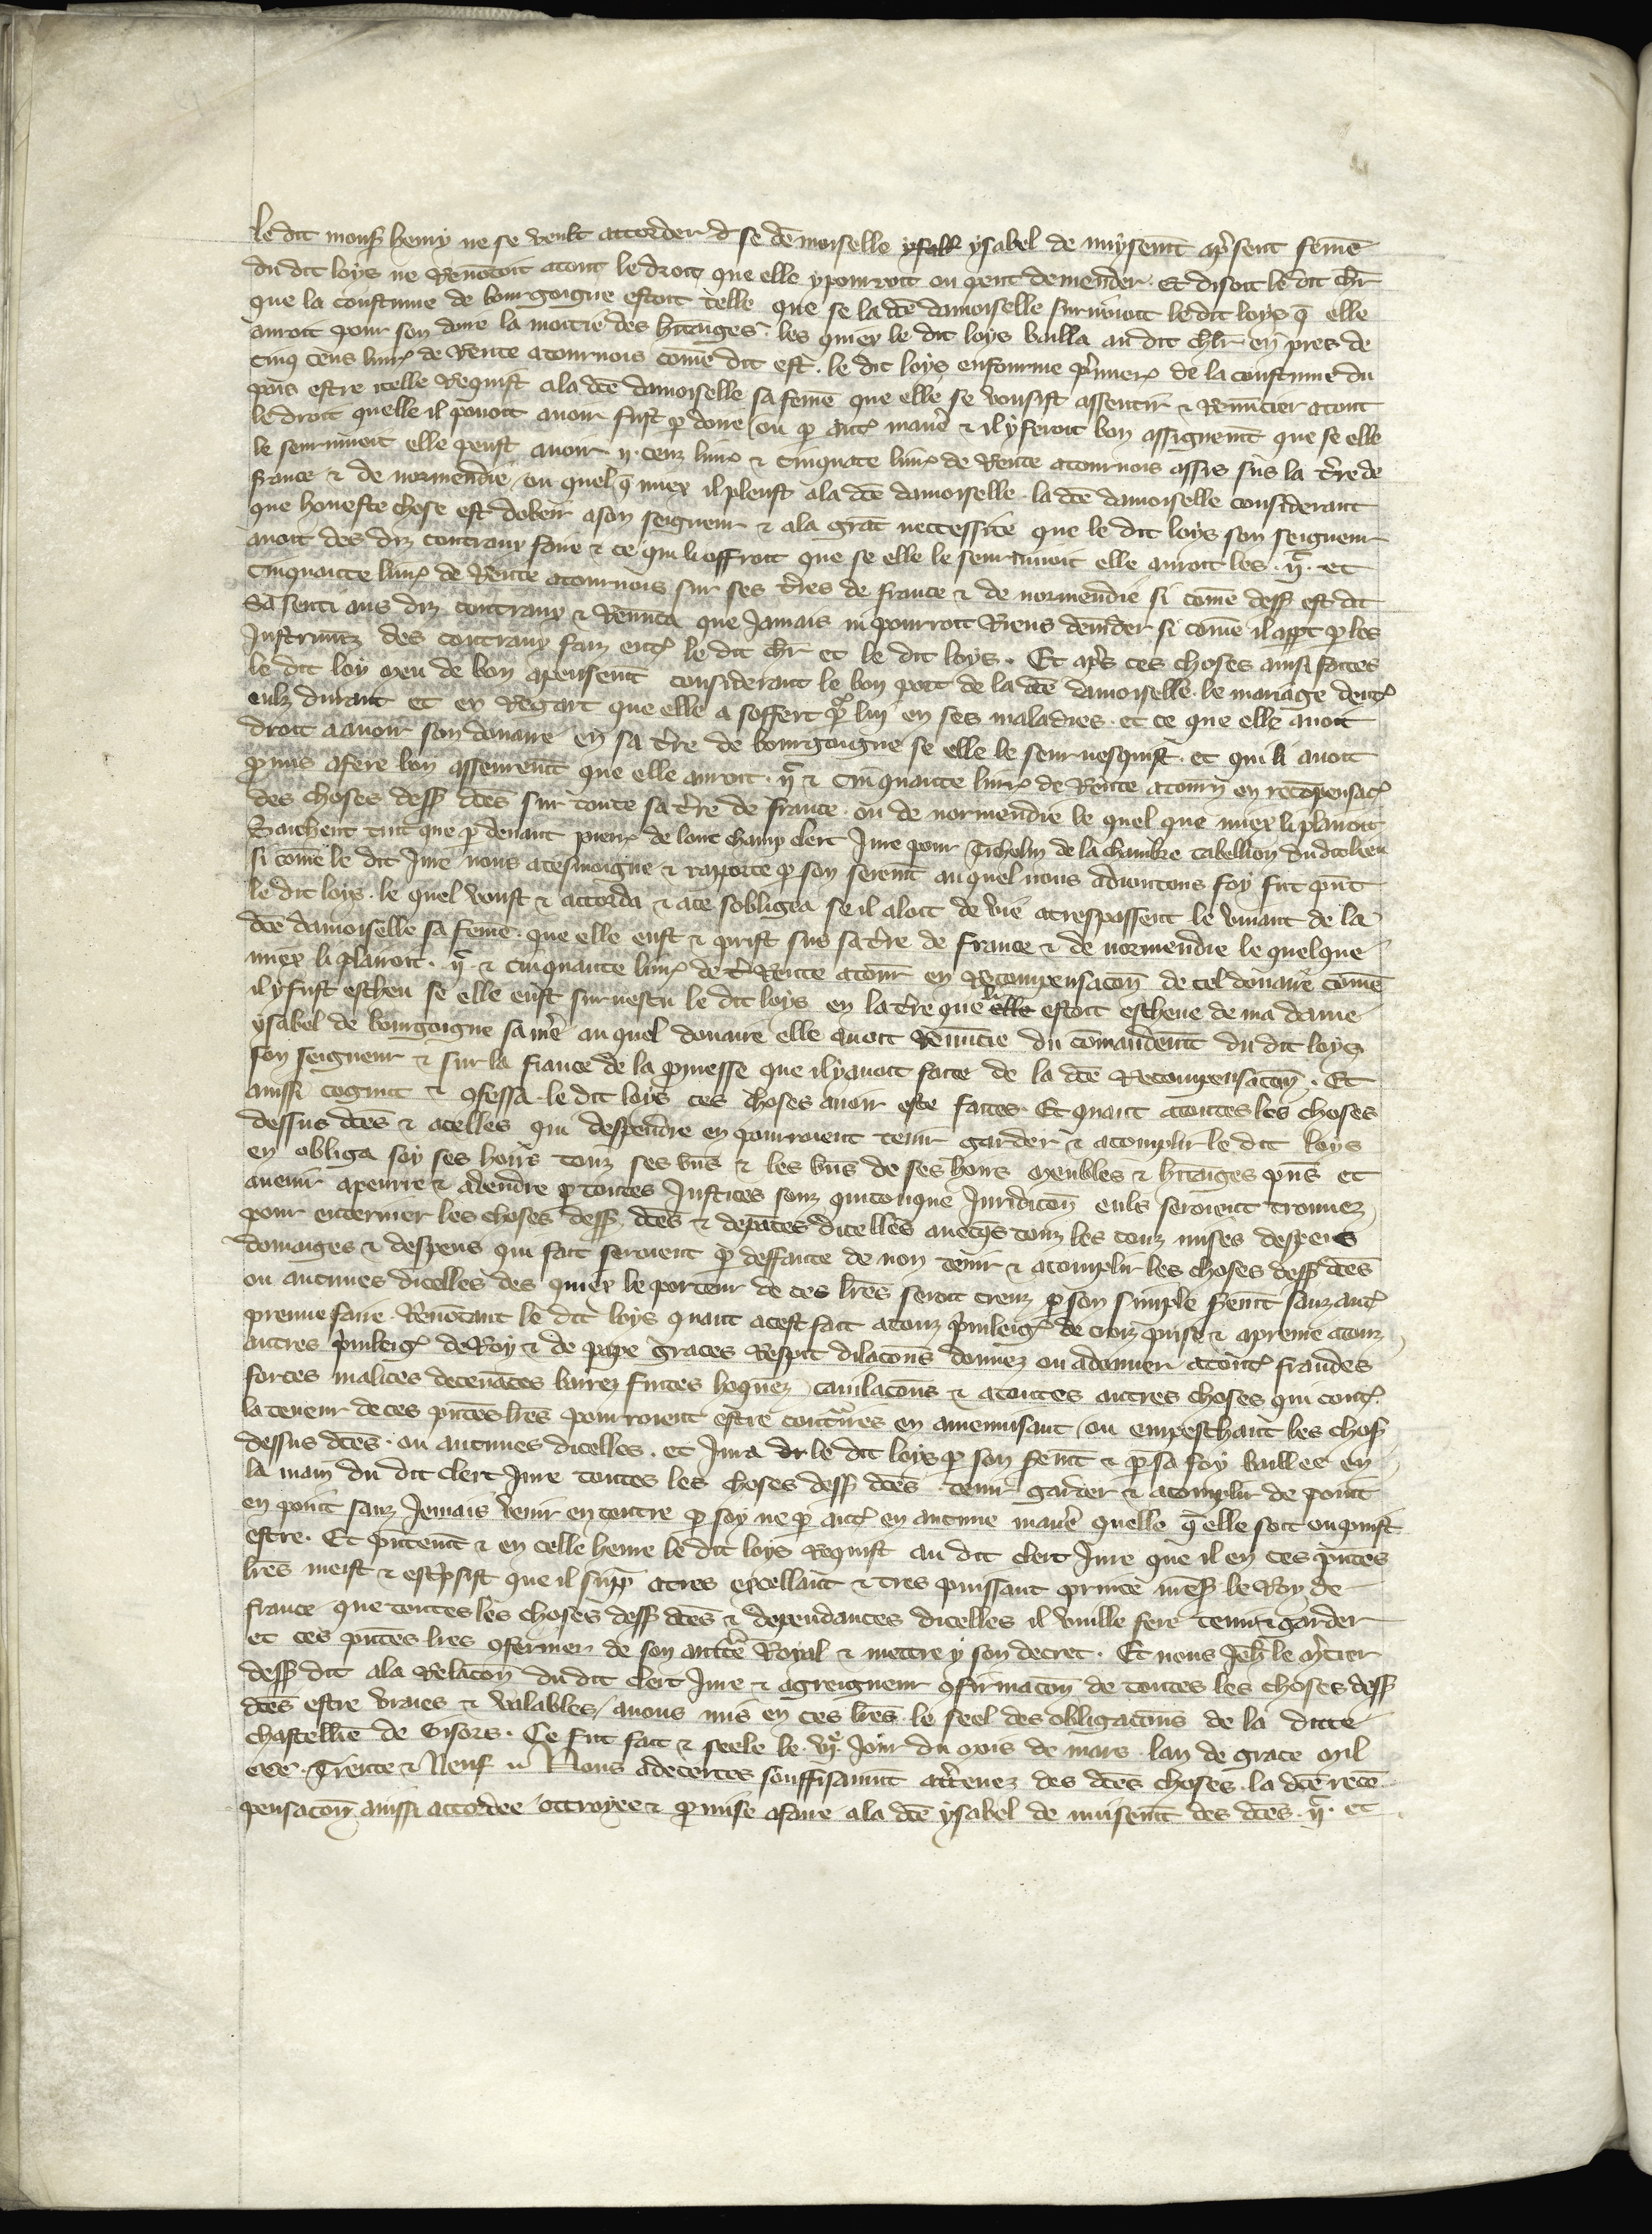 le dit mons̃ henry ne se veult accorder d se dẽmoiselle ysabl ysabel de muysent̃ ap̃sent fem̃e
du dit loys ne Renõcoit a tout le droit que elle y pourroit ou peut demender. Et disoit le dit ch̃lr
que la coustume de bourgoigne estoit telle que se la dc̃e damoiselle survivoit le dit loys q̃ elle
auroit pour son doue la moitie des h̃itaiges. les quiex le dit loys bailla au dit ch̃lr en pres de
cinq cens livr̃ de Rente a tournois com̃e dit est. le dit loys enfourme p̃mier̃ de la coustume du
paiis estre itelle Requist a la dc̃e damoiselle sa fem̃e que elle se vousist assentir & Renũcier a tout
le droit quelle il pouoit avoir fust p̱ doue ou p̱ aut̃ manẽ & il y feroit bon assignemt̃ que se elle
le sourvivoit elle peust avoir ij. cenz livr̃ & cinquãte livr̃ de Rente a tournois assis sus la t̃re de
france & de normendie ou quel q̃ miex il pleust a la dc̃e damoiselle. la dc̃e damoiselle considerant
que honeste chose est dobeir a son seigneur & a la grãt neccessite que le dit loys son seigneur
avoit des diz contraux faire & ce qui li offroit que se elle le seurvivoit elle auroit les. ijᶜ. et
cinquante livr̃ de Rente a tournois sur ses t̃res de france & de normendie si com̃e dess̃ est dit
sassenti aus diz contraux & Renũca que Jamais ni pourroit Riens demãder si com̃e il app̃t p̱ les
Instrumẽz des contraux faiz ent̃ le dit ch̃lr et le dit loys. Et ap̃s ces choses ainsi faites
le dit loy meu de bon apensemt̃ considerant le bon port de la dc̃e damoiselle. le mariage dent̃
eulz durant et ex Regart que elle a soffert p̱ lui en ses maladies. et ce que elle avoit
droit a avoir son douaire en sa t̃re de bourgoigne se elle le seurvesquist. et qui li avoit
p̱mis a fere bon asseuremt̃ que elle auroit. ijᶜ & cinquante livr̃ de Rente a tourñ en recõpensac̃
des choses dess̃ dc̃es sur toute sa t̃re de france. ou de normendie le quel que miex li plairoit
Sachent tuit que p̱ devant pierr̃ de lonc champ clerc Jure pour Nicholas de la chambre tabellion du dit lieu
si com̃e le dit Jure nous a tesmoigne & raporte p̱ son seremt̃ au quel nous adioutons foy fut p̃nt
le dit loys. le quel voust & accorda & a ce sobliga se il aloit de vie a trespassemt̃ le vivant de la
dc̃e damoiselle sa fem̃e. que elle eust & prist sus sa t̃re de france & de normendie le quelque
miex li plairoit. ijᶜ & cinquante livr̃ de t̃re Rente a tourñ en Recompensacõn de tel douaire com̃e
il y fust escheu se elle eust survescu le dit loys en la t̃re que li elle estoit escheue de ma dame
ysabel de bourgoigne sa m̃e au quel douaire elle avoit Renũcie du com̃andemt̃ du dit loys
son seigneur & sur la fiance de la p̱messe que il y avoit faite de la dc̃e Recompensacõn. Et
aussi cognut & ɔfessa le dit loys ces choses avoir este faites. Et quant a toutes les choses
dessus dc̃es & a celles qui despendre en pourroient tenir garder & acomplir le dit loys
en obliga soy ses hoirs touz ses biẽs & les biẽs de ses hoirs meubles & h̃itaiges p̃ns et
avenir a penre & a vendre p̱ toutes Justices souz quiconque Juridicõn eulz seroient trouvez
pour enteriner les choses dess̃ dc̃es & depẽdẽces dicelles avecq̃s touz les couz mises despens
domaiges & despens qui fait seroient p̱ deffaute de non tenir & acomplir les choses dess̃ dc̃es
ou aucunes dicelles des quiex le porteur de ces lr̃es seroit creuz p̱ son simple seremt̃ sanz aut̃
preuve faire. Renõcant le dit loys quant a cest fait a touz p̃vileig̃ de croiz prise & a prenre a touz
autres p̃vileig̃ de Roy & de pape graces Respit dilacõns donnez ou a donner a tout̃ fraudes
forces malices decevãces barrez fuites hoquez cavilacõns & a toutes autres choses qui cont̃
la teneur de ces p̃ntes lr̃es pourroient estre cont̃res en amenuisant ou empeschant les chos̃
dessus dc̃es. ou aucunes dicelles. et Jura dr le dit loys p̱ son sermt̃ & p̱ sa foy baillee en
la main du dit clerc Jure toutes les choses dess̃ dc̃es tenir garder & acomplir de point
en point sanz Jamais venir en contre p̱ soy ne p̱ aut̃ en aucune manẽ quelle q̃ elle soit ou puist
estre. Et p̃ntemt̃ & en celle heure le dit loys Requist au dit clerc Jure que il en ces p̃ntes
lr̃es meist & esc̃psist que il supp̃ a tres excellant & tres puissant prince m̃es̃ le Roy de
france que toutes les choses dess̃ dc̃es & dependances dicelles il vuille fere tenir & garder
et ces p̃ntes lr̃es ɔfermer de son auct̃te Royal & mettre y son decret. Et nous Jeh̃ le m̃cier
dess̃ dit a la Relacõn du dit clerc Jure & a greigneur ɔfirmacõn de toutes les choses dess̃
dc̃es estre vraies & valables avons mis en ces lr̃es le seel des obligacõns de la dicte
chastellie de Gisors. Ce fut fait & seele le. vijᵉ. Jour du mois de mars. lan de grace mil
ccc. Trente & Neuf // Nous adecertes souffisaumt̃ acertenez des dc̃es choses. la dc̃e recõ
pensacõn aussi accordee octroyee & p̱mise a faire a la dc̃e ysabel de muisent̃ des dc̃es. ijᶜ. et